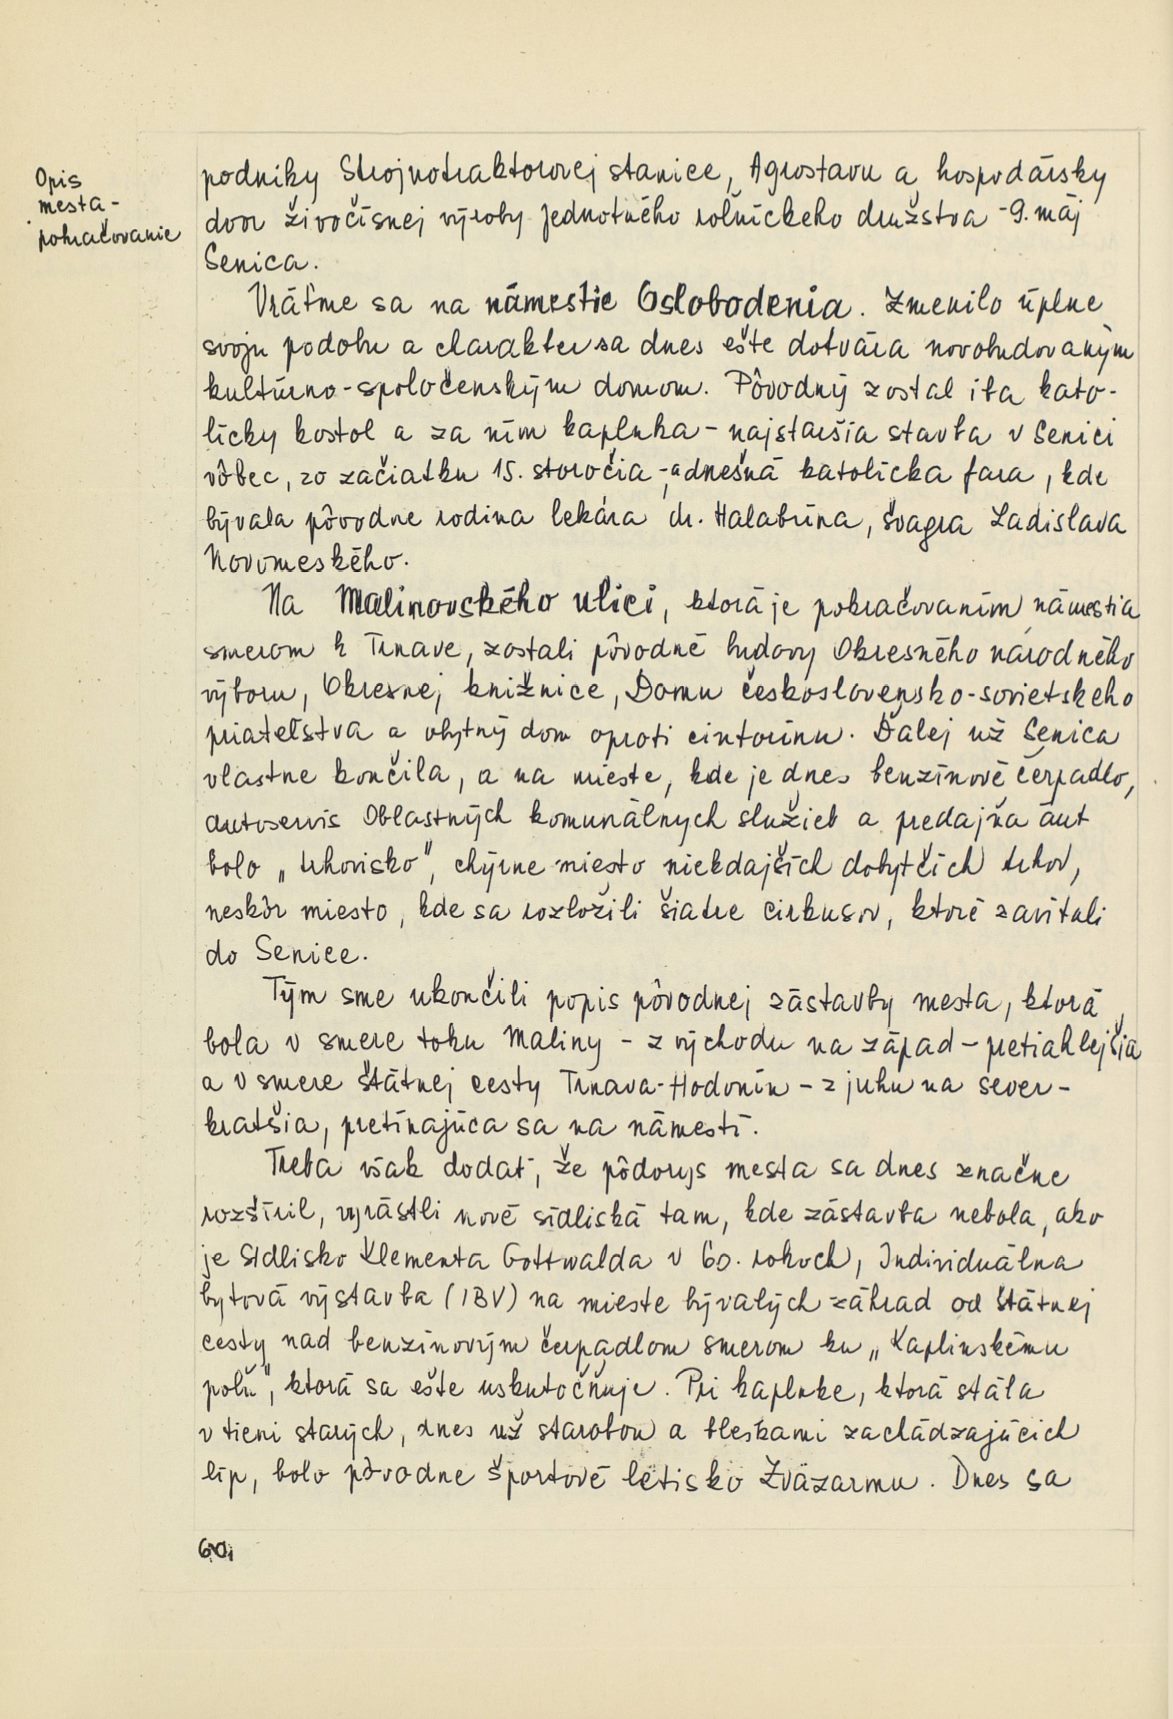 Opis
mesta -
pokračovanie
podniky Strojnotraktorovej stanice, Agrostavu a hospodársky
dvor živočíšnej výroby Jednotného roľníckeho družstva - 9. máj
Senica.
Vráťme sa na námestie Oslobodenia. Zmenilo úplne
svoju podobu a charakter sa dnes ešte dotvára novobudovaným
kultúrno-spoločenským domom. Pôvodný zostal iba kato-
lícky kostol a za ním kaplnka - najstaršia stavba v Senici
vôbec, zo začiatku 15. storočia -, a dnešná katolícka fara, kde
bývala pôvodne rodina lekára dr. Halabrína, švagra Ladislava
Novomeského.
Na Malinovského ulici, ktorá je pokračovaním námestia
smerom k Trnave, zostali pôvodné budovy Okresného národného
výboru, Okresnej knižnice, Domu československo-sovietskeho
priateľstva a obytný dom oproti cintorínu. Ďalej už Senica
vlastne končila, a na mieste, kde je dnes benzínové čerpadlo,
autoservis Oblastných komunálnych služieb a predajňa áut
bolo „trhovisko", chýrne miesto niekdajších dobytčích trhov,
neskôr miesto, kde sa rozložili šiatre cirkusov, ktoré zavítali
do Senice.
Tým sme ukončili popis pôvodnej zástavby mesta, ktorá
bola v smere toku Maliny - z východu na západ - pretiahlejšia
a v smere štátnej cesty Trnava-Hodonín - z juhu na sever -
kratšia, pretínajúca sa na námestí.
Treba však dodať, že pôdorys mesta sa dnes značne
rozšíril, vyrástli nové sídliská tam, kde zástavba nebola, ako
je Sídlisko Klementa Gottwalda v 60. rokoch, Individuálna
bytová výstavba (IBV) na mieste bývalých záhrad od štátnej
cesty nad benzínovým čerpadlom smerom ku „Kaplinskému
poľu", ktorá sa ešte uskutočňuje. Pri kaplnke, ktorá stála
v tieni starých, dnes už starobou a bleskami zachádzajúcich
líp, bolo pôvodne športové letisko Zväzarmu. Dnes sa
60.